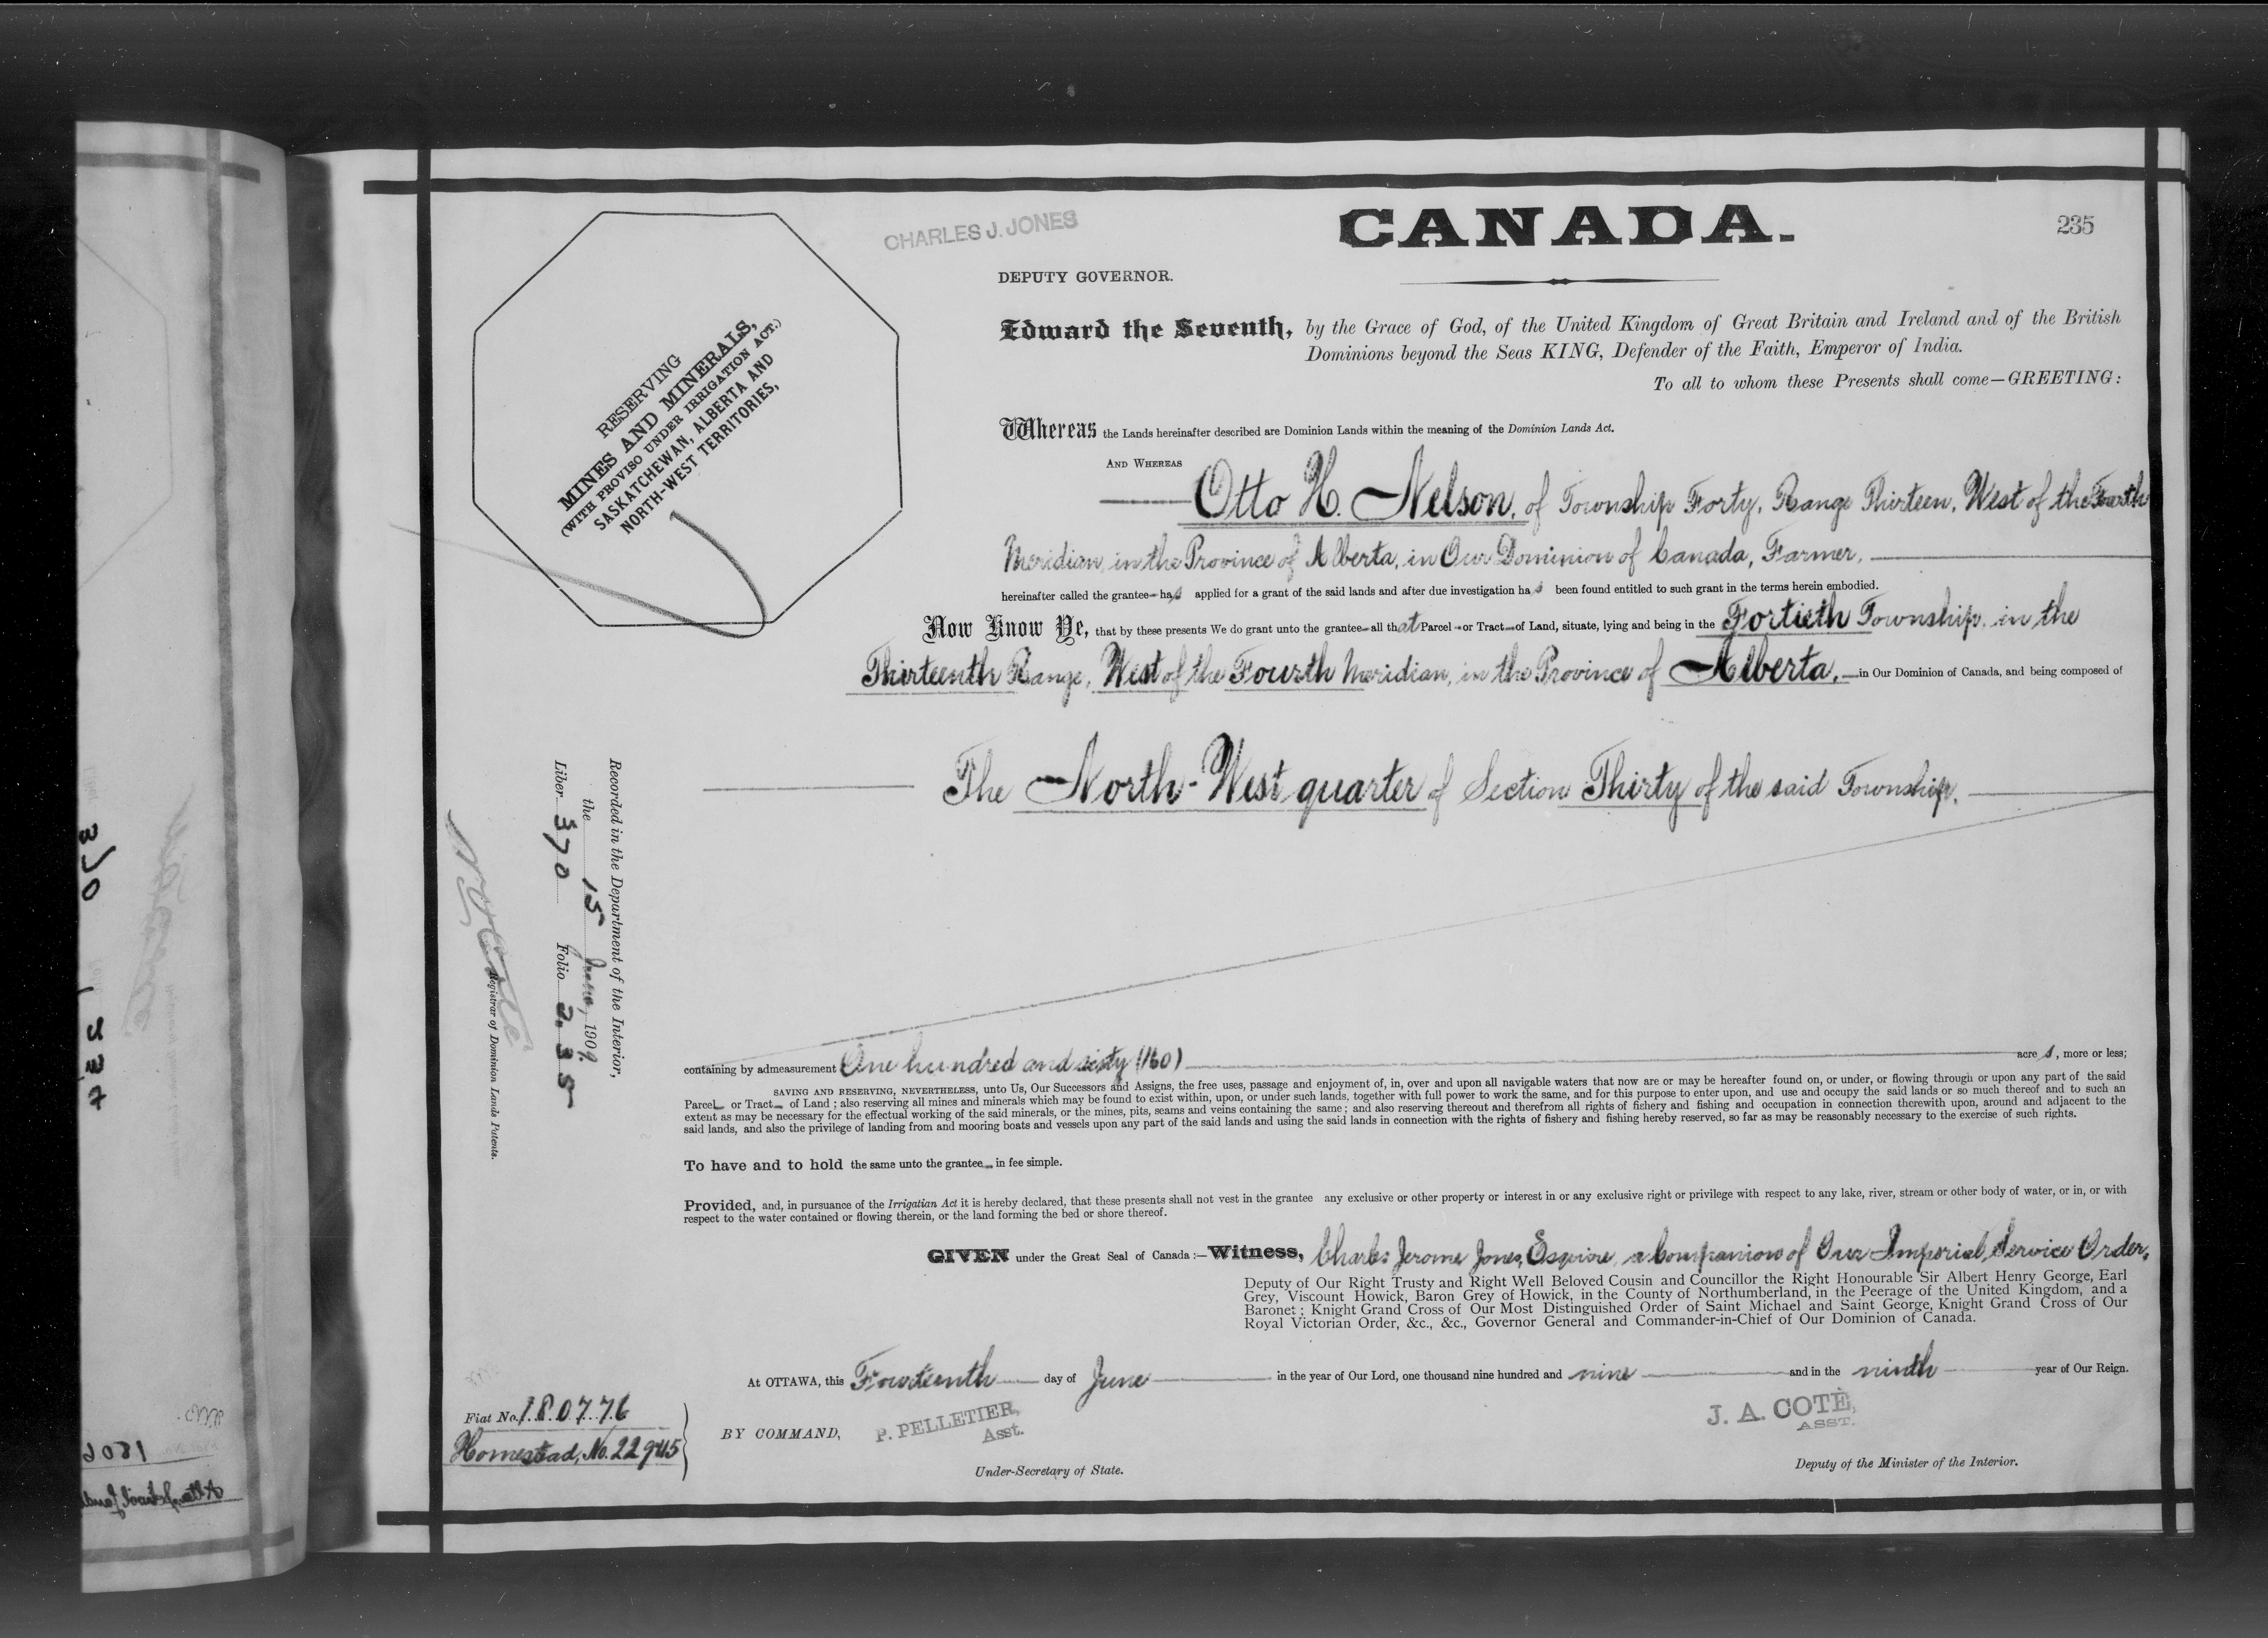 CANADA.
235
CHARLES J. JONES
DEPUTY GOVERNOR.
RESERVING
MINES AND MINERALS,
(WITH PROVISO UNDER IRRIGATION ACT.)
SASKATCHEWAN, ALBERTA AND
NORTH-WEST TERRITORIES,
Edward the Seventh, by the Grace of God, of the United Kingdom of Great Britain and Ireland and of the British
Dominions beyond the Seas KING, Defender of the Faith, Emperor of India.
To all to whom these Presents shall come—GREETING:
Whereas the Lands hereinafter described are Dominion Lands within the meaning of the Dominion Lands Act.
AND WHEREAS
Otto H. Nelson, of Township Forty, Range Thirteen, West of the Fourth
Meridian, in the Province of Alberta, in Our Dominion of Canada, Farmer,
hereinafter called the grantee has applied for a grant of the said lands and after due investigation has been found entitled to such grant in the terms herein embodied.
Now Know Ye, that by these presents We do grant unto the grantee all that Parcel or Tract of Land, situate, lying and being in the Fortieth Township, in the
Thirteenth Range, West of the Fourth Meridian, in the Province of Alberta, in Our Dominion of Canada, and being composed of
The North-West quarter of Section Thirty of the said Township.
Recorded in the Department of the Interior,
the 15 June, 1909
Liber 370 Folio 235
Registrar of Dominion Lands Patents.
containing by admeasurement One hundred and sixty (160) acres, more or less;
SAVING AND RESERVING, NEVERTHELESS, unto Us, Our Successors and Assigns, the free uses, passage and enjoyment of, in, over and upon all navigable waters that now are or may be hereafter found on, or under, or flowing through or upon any part of the said
Parcel or Tract of Land; also reserving all mines and minerals which may be found to exist within, upon, or under such lands, together with full power to work the same, and for this purpose to enter upon, and use and occupy the said lands or so much thereof and to such an
extent as may be necessary for the effectual working of the said minerals, or the mines, pits, seams and veins containing the same; and also reserving thereout and therefrom all rights of fishery and fishing and occupation in connection therewith upon, around and adjacent to the
said lands, and also the privilege of landing from and mooring boats and vessels upon any part of the said lands and using the said lands in connection with the rights of fishery and fishing hereby reserved, so far as may be reasonably necessary to the exercise of such rights.
To have and to hold the same unto the grantee in fee simple.
Provided, and, in pursuance of the Irrigatian Act it is hereby declared, that these presents shall not vest in the grantee any exclusive or other property or interest in or any exclusive right or privilege with respect to any lake, river, stream or other body of water, or in, or with
respect to the water contained or flowing therein, or the land forming the bed or shore thereof.
GIVEN under the Great Seal of Canada:—Witness, Charles Jerome Jones, Esquire, a Companion of Our Imperial Service Order,
Deputy of Our Right Trusty and Right Well Beloved Cousin and Councillor the Right Honourable Sir Albert Henry George, Earl
Grey, Viscount Howick, Baron Grey of Howick, in the County of Northumberland, in the Peerage of the United Kingdom, and a
Baronet; Knight Grand Cross of Our Most Distinguished Order of Saint Michael and Saint George, Knight Grand Cross of Our
Royal Victorian Order, &c., &c., Governor General and Commander-in-Chief of Our Dominion of Canada.
At OTTAWA, this Fourteenth day of June in the year of Our Lord, one thousand nine hundred and nine and in the ninth year of Our Reign.
Fiat No. 180776
Homestead, No. 
BY COMMAND,
P. PELLETIER,
Asst.
Under-Secretary of State.
J. A. COTÉ,
ASST.
Deputy of the Minister of the Interior.